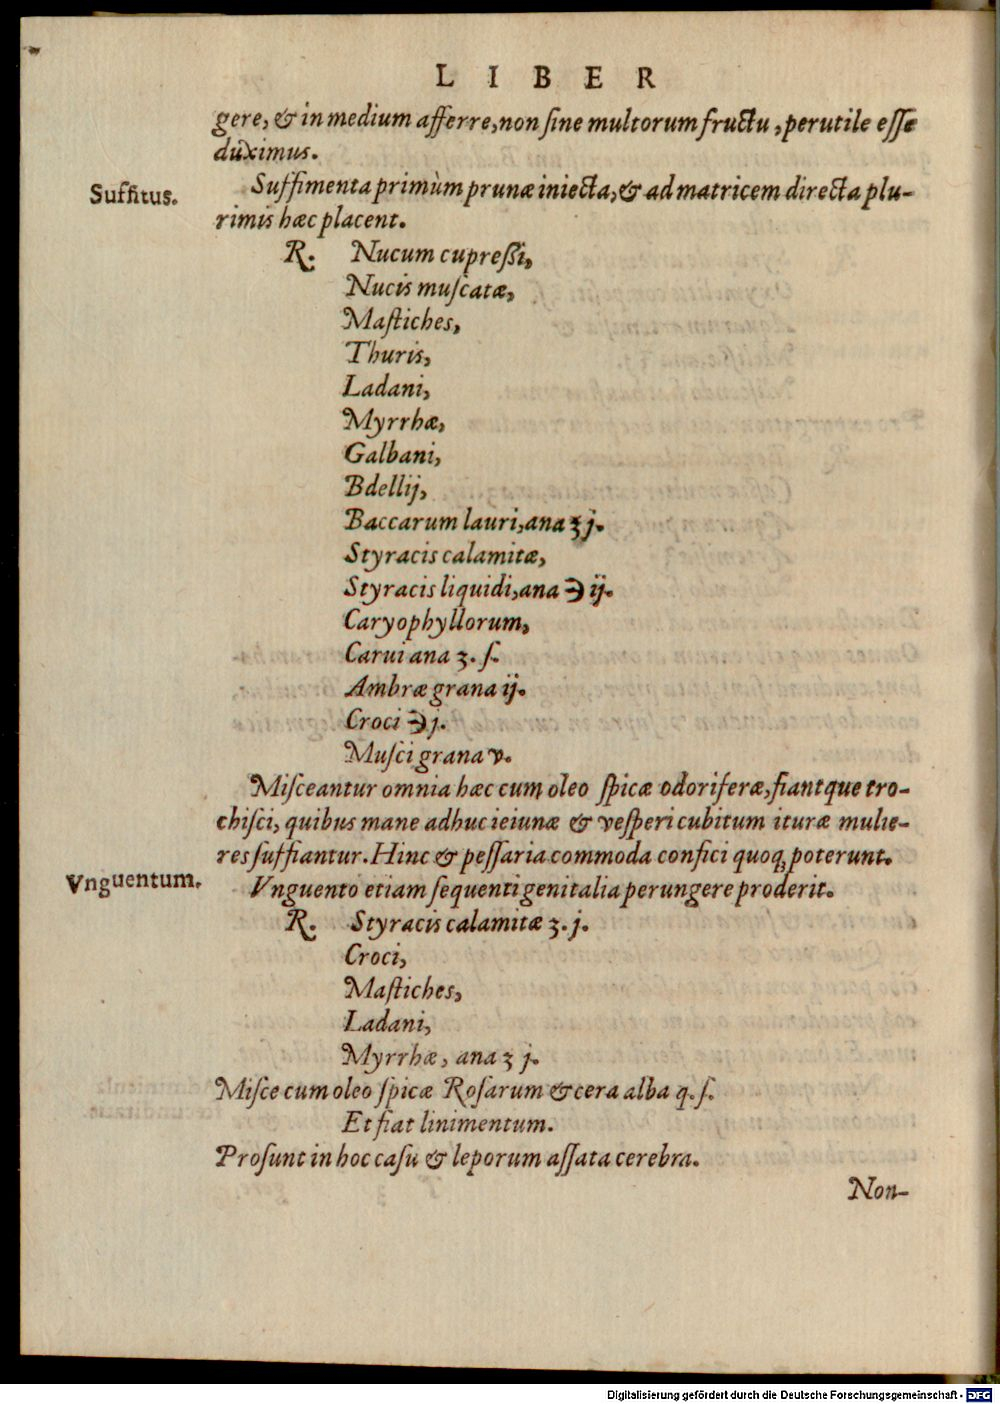 LIBER
gere, & in medium afferre, non sine multorum fructu, perutile esse
duximus.
Suffitus.
Suffimenta primùm prunæ iniecta, & ad matricem directa plu-
rimis hæc placent.
℞. Nucum cupreßi,
Nucis muscatæ,
Mastiches,
Thuris,
Ladani,
Myrrhæ,
Galbani,
Bdellij,
Baccarum lauri, ana ʒ j.
Styracis calamitæ,
Styracis liquidi, ana ℈ ij.
Caryophyllorum,
Carui ana ʒ. ſ.
Ambræ grana ij.
Croci ℈ j.
Musci grana v.
Misceantur omnia hæc cum oleo spicæ odoriferæ, fiantque tro-
chisci, quibus mane adhuc ieiunæ & vesperi cubitum ituræ mulie-
res suffiantur. Hinc & pessaria commoda confici quoq; poterunt.
Vnguentum.
Vnguento etiam sequenti genitalia perungere proderit.
℞. Styracis calamitæ ʒ. j.
Croci,
Mastiches,
Ladani,
Myrrhæ, ana ʒ j.
Misce cum oleo spicæ Rosarum & cera alba q. ſ.
Et fiat linimentum.
Prosunt in hoc casu & leporum assata cerebra.
Non-
Digitalisierung gefördert durch die Deutsche Forschungsgemeinschaft - DFG